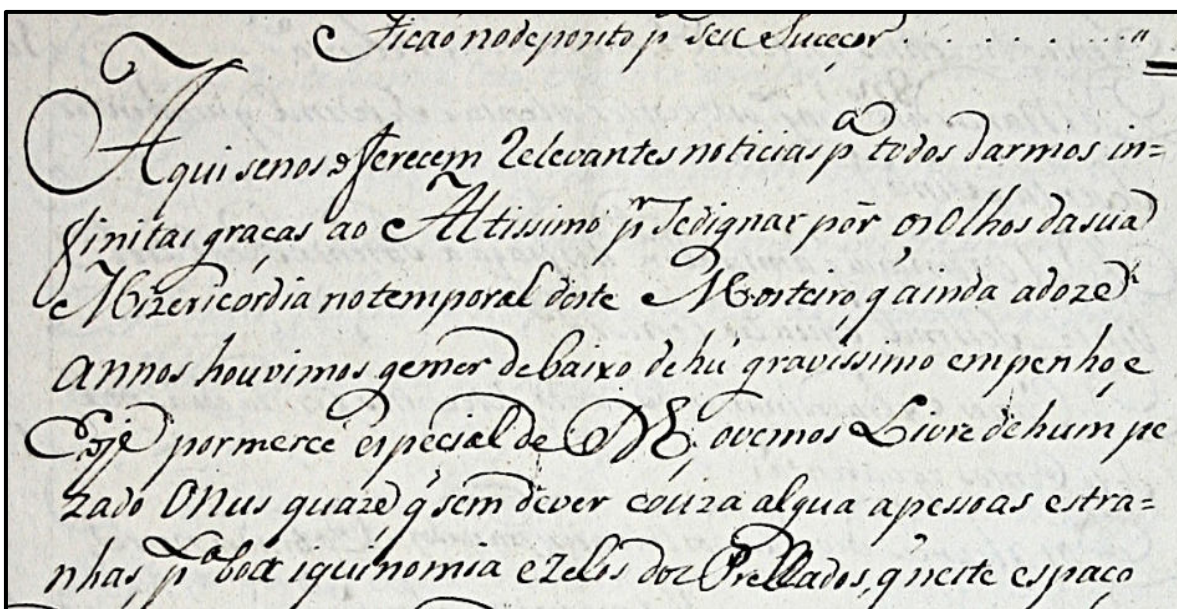 Ficaõ no deposito pª seu Suceçor . . . . . . . "
Aqui se nos offerecem Relevantes noticias pª todos darmos in=
finitas graças ao Altissimo pʳ se dignar pôr os Olhos da sua
Mizericordia no temporal deste Mosteiro, q̃ ainda a doze
annos houvimos gemer de baixo de hũ gravissimo empenho, e
oje por merce especial de D.ˢ, o vemos Livre de hum pe
zado Onus quaze q̃ sem dever couza algua a pessoas estra=
nhas, pˡª boa iquinomia e zelos dos Prellados, q̃ neste espaço